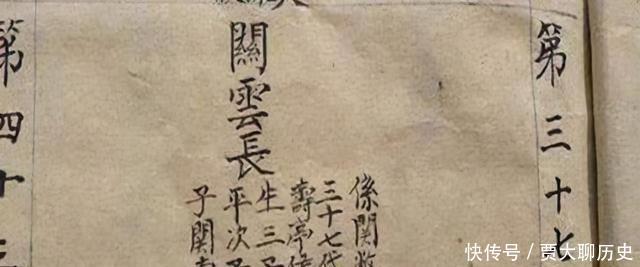 第三十七
關雲長
係関
三十七代
壽亭侯
生三子
平次
子関
第四十
快传号/贾大聊历史